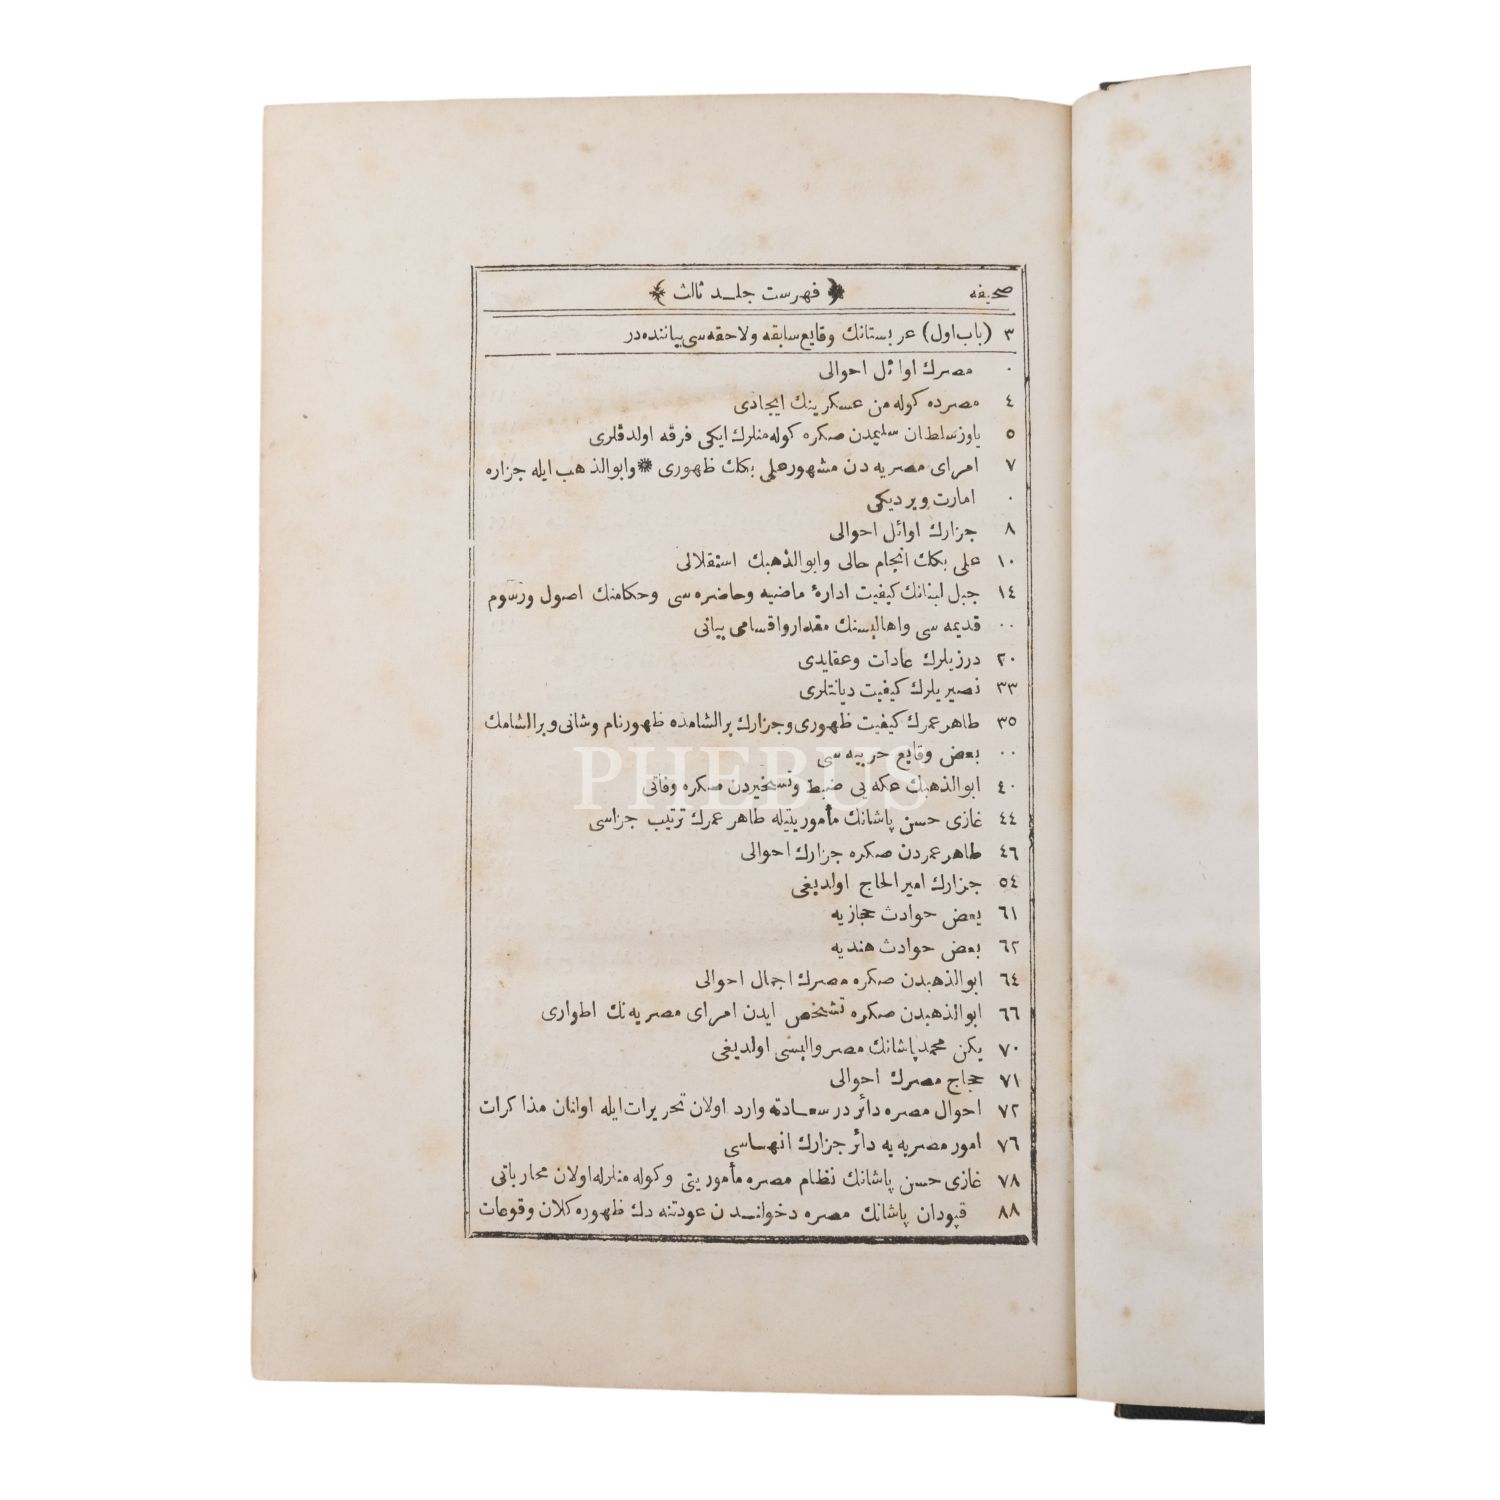 صحيفه ﴿ فهرست جلـــد ثالث ﴾
٣ (باب اول) عربستانك وقايع سابقه ولاحقه سى بياننده در
٠ مصرك اوائل احوالى
٤ مصرده كوله من عسكرينك ايجادى
٥ ياوز سلطان سليمدن صكره كوله منلرك ايكى فرقه اولدقلرى
٧ امراى مصريه دن مشهور على بكك ظهورى * وابو الذهب ايله جزاره
٠ امارت ويرديكى
٨ جزارك اوائل احوالى
١٠ على بكك انجام حالى وابو الذهبك استقلالى
١٤ جبل لبنانك كيفيت ادارۀ ماضيه وحاضره سى وحكامنك اصول ورسوم
٠٠ قديمه سى واهاليسنك مقدار واقسامى بيانى
٢٠ درزيلرك عادات وعقايدى
٣٣ نصيريلرك كيفيت ديانتلرى
٣٥ طاهر عمرك كيفيت ظهورى وجزارك بر الشامده ظهور نام وشانى وبر الشامك
٠٠ بعض وقايع حربيه سى
٤٠ ابو الذهبك عكه يى ضبط وتسخيردن صكره وفاتى
٤٤ غازى حسن پاشانك مأموريتيله طاهر عمرك ترتيب جزاسى
٤٦ طاهر عمردن صكره جزارك احوالى
٥٤ جزارك امير الحاج اولديغى
٦١ بعض حوادث حجازيه
٦٢ بعض حوادث هنديه
٦٤ ابو الذهبدن صكره مصرك اجمال احوالى
٦٦ ابو الذهبدن صكره تشخص ايدن امراى مصريه نك اطوارى
٧٠ يكن محمد پاشانك مصر واليسى اولديغى
٧١ حجاج مصرك احوالى
٧٢ احوال مصره دائر در سعـــادته وارد اولان تحريرات ايله اولنان مذاكرات
٧٦ امور مصريه يه دائر جزارك انهـاسى
٧٨ غازى حسن پاشانك نظام مصره مأموريتى وكوله منلرله اولان محارباتى
٨٨ قپودان پاشانك مصره دخولنـــدن عودتنه دك ظهوره كلان وقوعات
PHEBUS